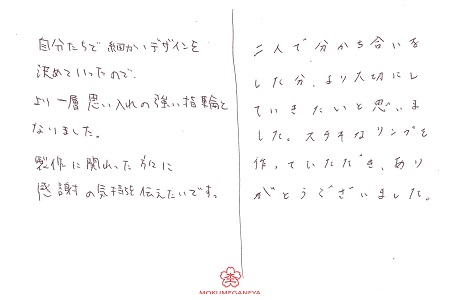 自分たちで細かいデザインを
決めていったので、
より一層思い入れの強い指輪と
なりました。
製作に関わった方々に
感謝の気持ちを伝えたいです。
二人で分かち合いを
した分、より大切にし
ていきたいと思いま
した。ステキなリングを
作っていただき、あり
がとうございました。
MOKUMEGANEYA